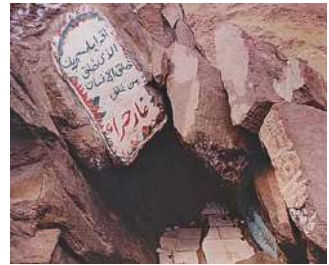 اقرا باسم ربك
الذى خلق
خلق الانسان
من علق
غار حراء